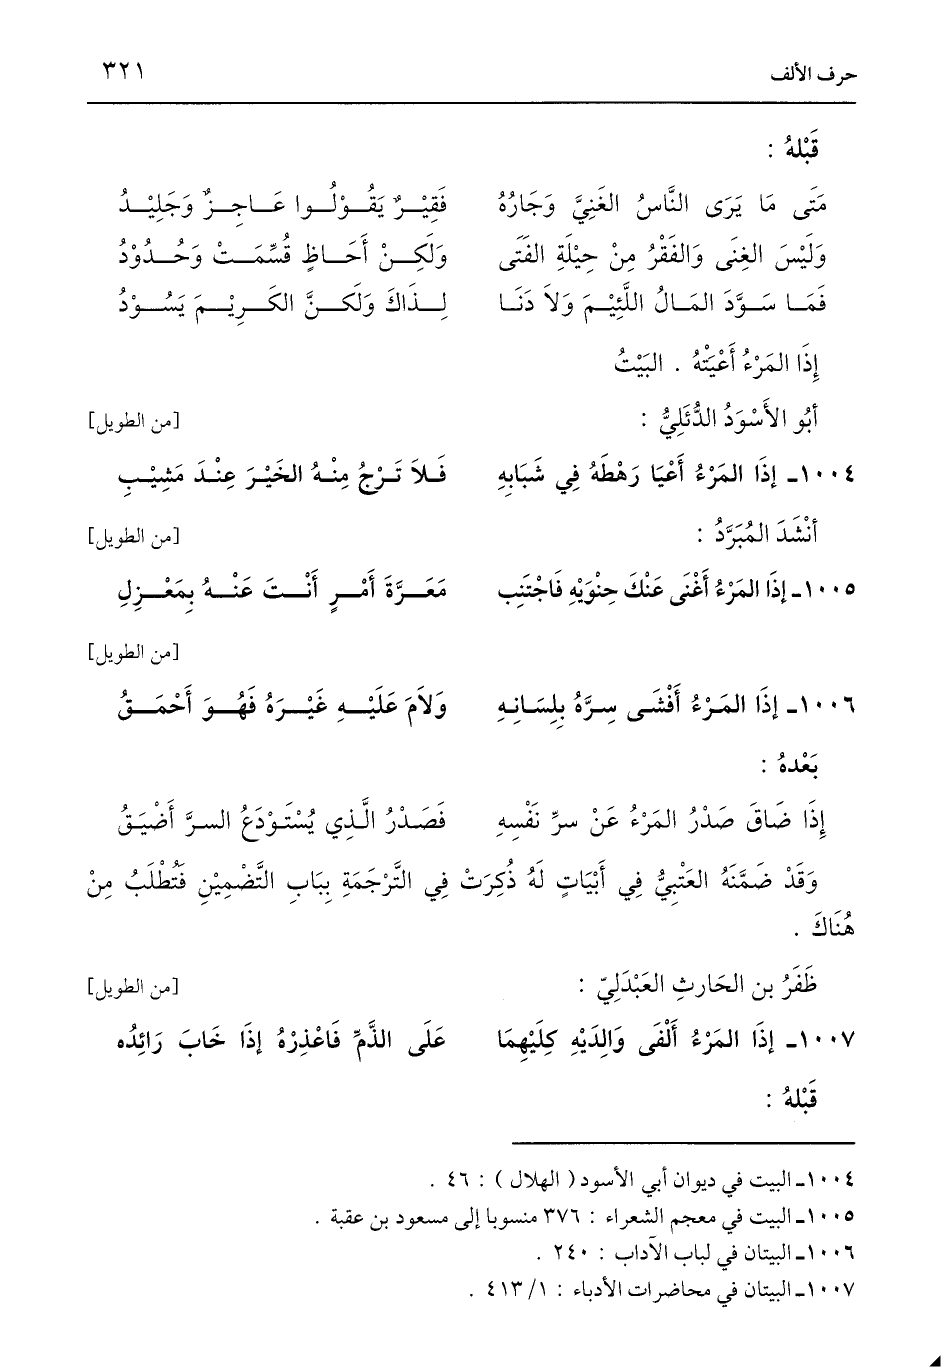 حرف الألف ٣٢١
قَبْلهُ :
مَتَى مَا يَرَى النَّاسُ الغَنِيَّ وَجَارُهُ فَقِيْرٌ يَقُوْلُوا عَاجِزٌ وَجَلِيْدُ
وَلَيْسَ الغِنَى وَالفَقْرُ مِنْ حِيْلَةِ الفَتَى وَلَكِنْ أَحَاظٍ قُسِّمَتْ وَحُدُوْدُ
فَمَا سَوَّدَ المَالُ اللَّئِيْمَ وَلاَ دَنَا لِذَاكَ وَلَكنَّ الكَرِيْمَ يَسُوْدُ
إِذَا المَرْءُ أَعْيَتْهُ . البَيْتُ
أَبُو الأَسْوَدُ الدُّئَلِيُّ : [من الطويل]
١٠٠٤ـ إِذَا المَرْءُ أَعْيَا رَهْطَهُ فِي شَبَابِهِ فَلاَ تَرْجُ مِنْهُ الخَيْرَ عِنْدَ مَشِيْبِ
أَنْشَدَ المُبَرَّدُ : [من الطويل]
١٠٠٥ـ إِذَا المَرْءُ أَغْنَى عَنْكَ حِنْوَيْهِ فَاجْتَنِب مَعَرَّةَ أَمْرٍ أَنْتَ عَنْهُ بِمَعْزِلِ
[من الطويل]
١٠٠٦ـ إِذَا المَرْءُ أَفْشَى سِرَّهُ بِلِسَانِهِ وَلاَمَ عَلَيْهِ غَيْرَهُ فَهُوَ أَحْمَقُ
بَعْدهُ :
إِذَا ضَاقَ صَدْرُ المَرْءُ عَنْ سرِّ نَفْسِهِ فَصَدْرُ الَّذِي يُسْتَوْدَعُ السرَّ أَضْيَقُ
وَقَدْ ضَمَّنَهُ العَتبِيُّ فِي أَبْيَاتٍ لَهُ ذُكِرَتْ فِي التَّرْجَمَةِ بِبَابِ التَّضْمِيْنِ فَتُطْلَبُ مِنْ
هُنَاكَ .
ظَفَرُ بن الحَارثِ العَبْدَلِيّ : [من الطويل]
١٠٠٧ـ إِذَا المَرْءُ أَلْفَى وَالِدَيْهِ كِلَيْهِمَا عَلَى الذَّمِّ فَاعْذِرْهُ إِذَا خَابَ رَائِدُه
قَبْلهُ :
١٠٠٤ـ البيت في ديوان أبي الأسود ( الهلال ) : ٤٦ .
١٠٠٥ـ البيت في معجم الشعراء : ٣٧٦ منسوبا إلى مسعود بن عقبة .
١٠٠٦ـ البيتان في لباب الآداب : ٢٤٠ .
١٠٠٧ـ البيتان في محاضرات الأدباء : ١/ ٤١٣ .